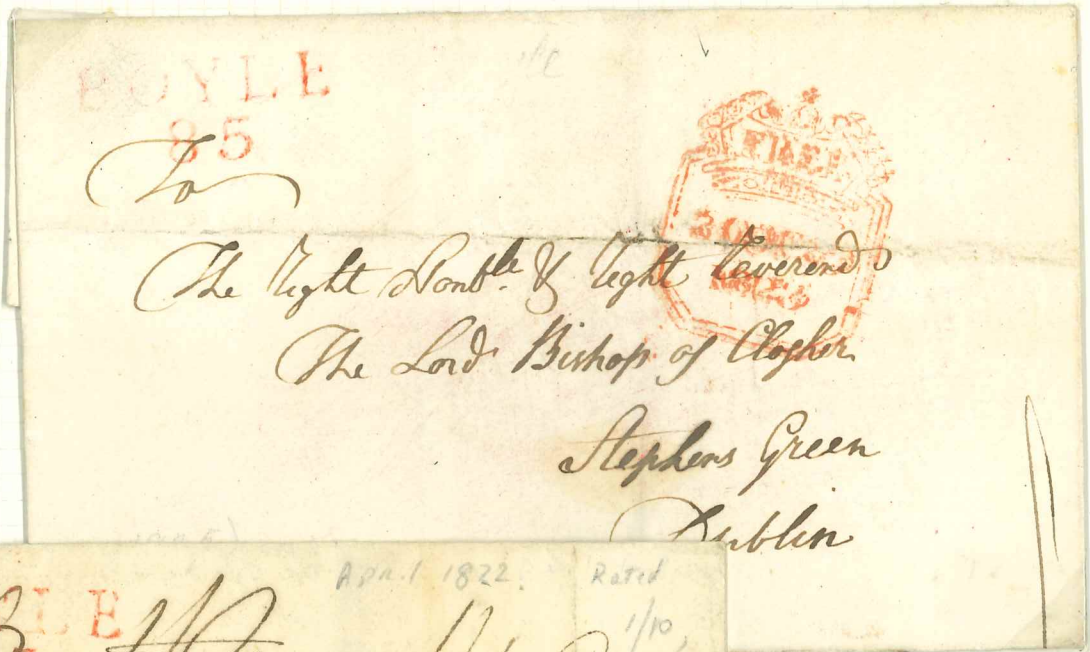 BOYLE
85
To
FREE
The Right Honble. & Right Reverend
The Lord Bishop of Clogher
Stephens Green
Dublin
April 1822.
Rated
1/10,
LE